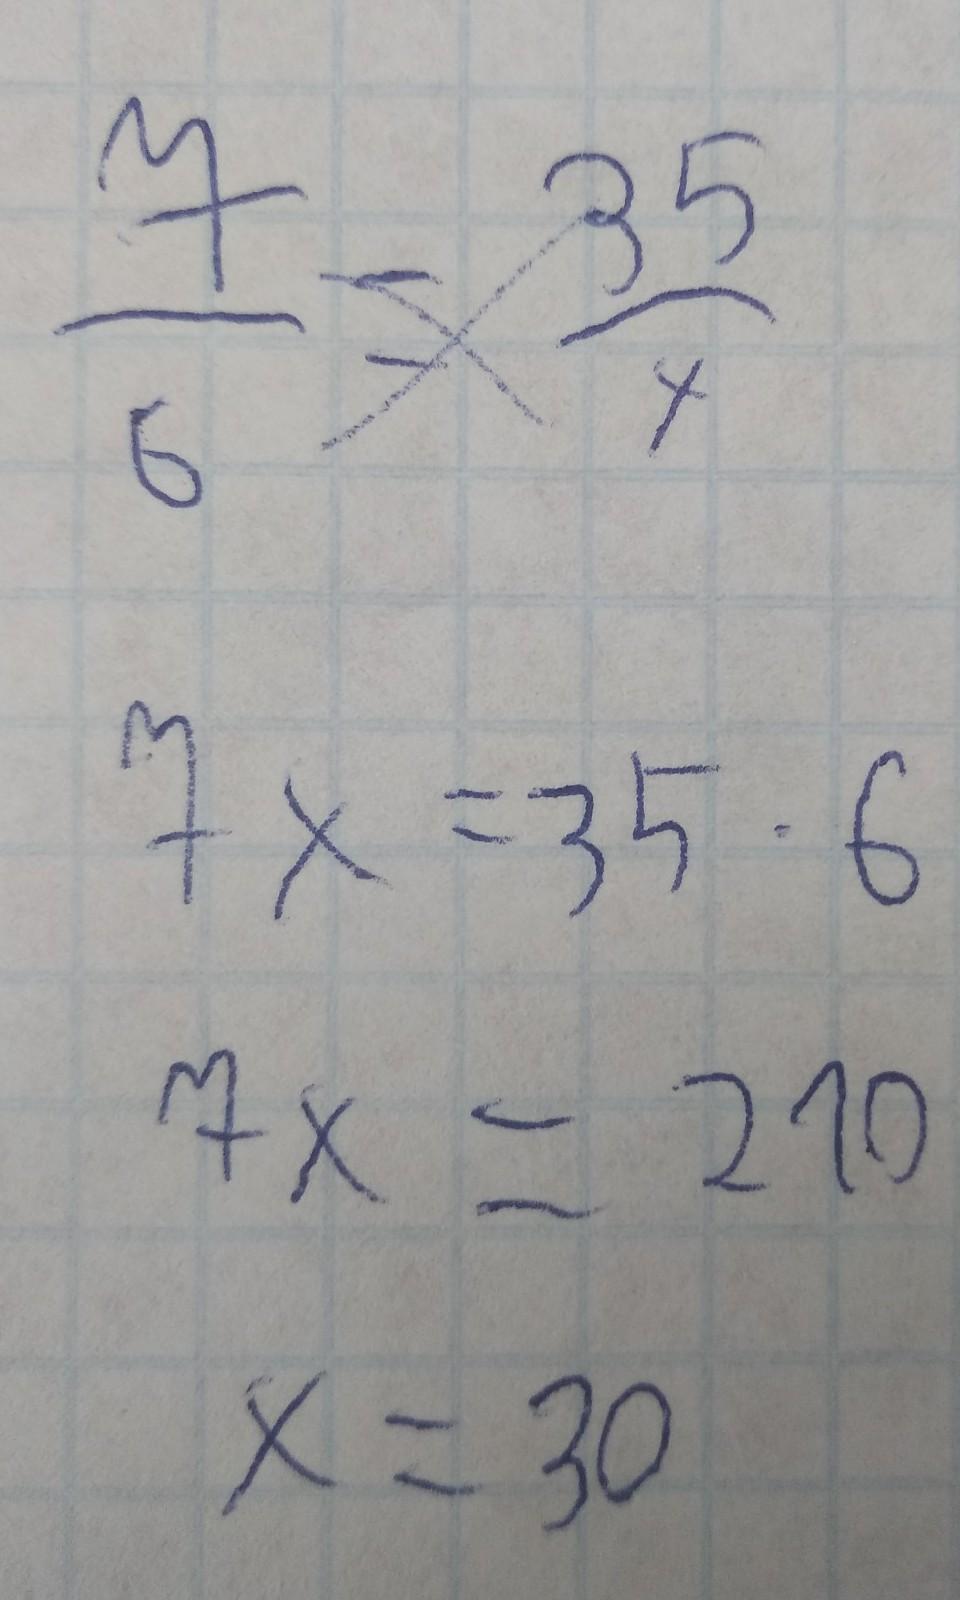 7/6 = 35/x
7x = 35 · 6
7x = 210
x = 30